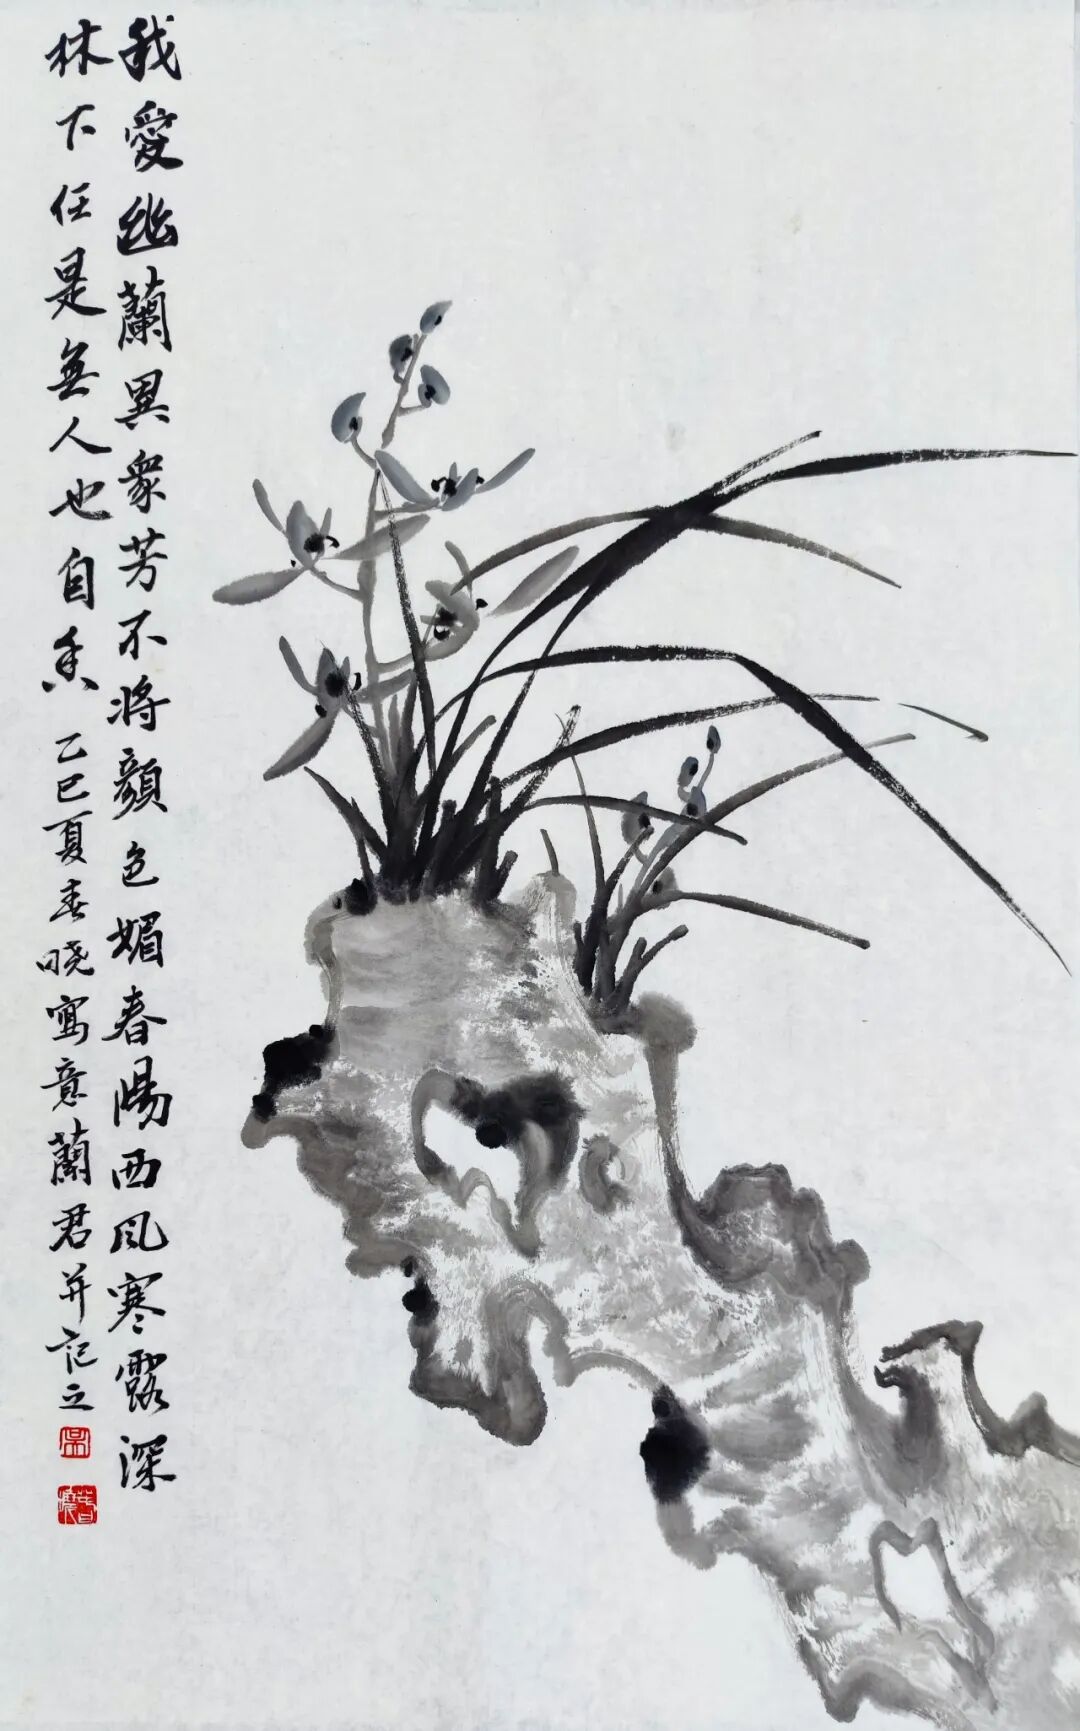 我愛幽蘭異衆芳不将顔色媚春陽西风寒露深
林下任是無人也自香 乙巳夏春晓寫意蘭君并记之